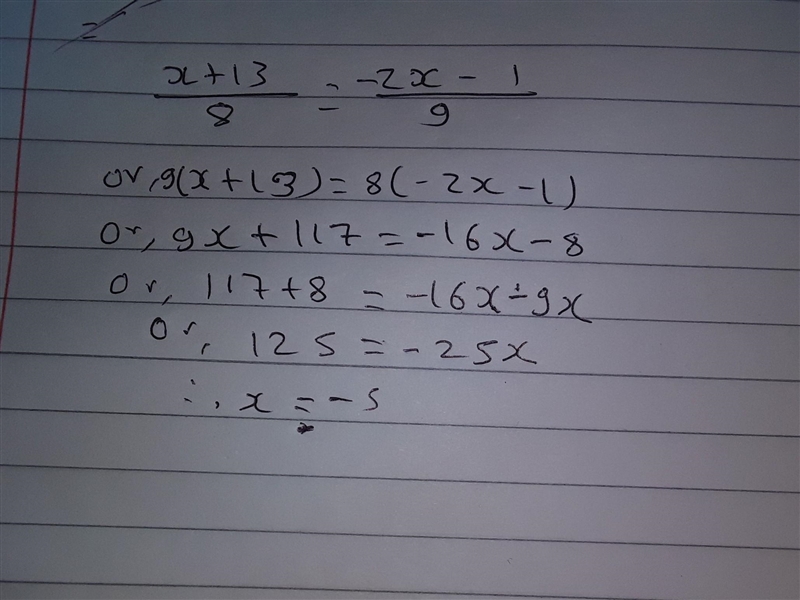 x+13/8 = -2x - 1/9
or, 9(x+13) = 8(-2x-1)
Or, 9x+117 = -16x-8
Or, 117+8 = -16x-9x
Or, 125 = -25x
∴, x = -5